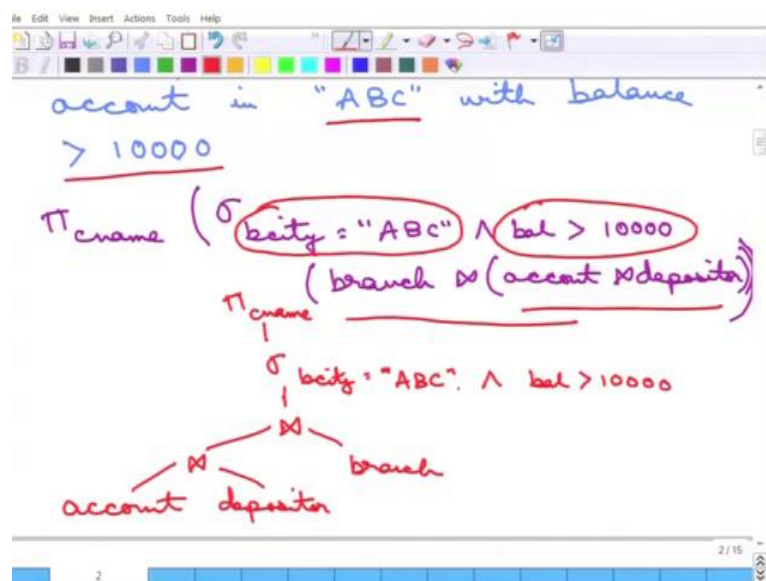 File Edit View Insert Actions Tools Help
account in "ABC" with balance
> 10000
π cname (σ bcity = "ABC" ∧ bal > 10000
(branch ⋈ (account ⋈ depositor)))
π cname
σ bcity = "ABC" ∧ bal > 10000
⋈
⋈ branch
account depositor
2 / 15
2